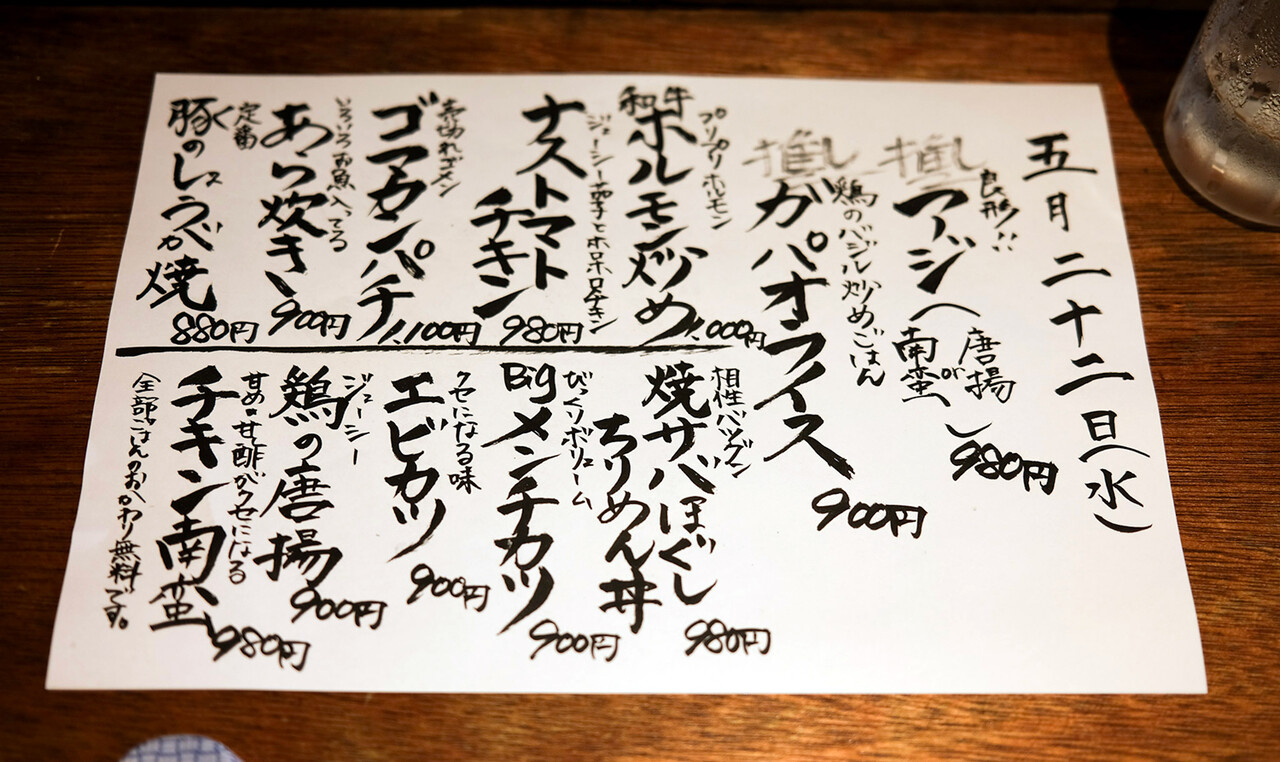 五月二十二日(水)
推し
良形!!
アジ(唐揚or南蛮)
980円
推し
鶏のバジル炒めごはん
ガパオライス
900円
プリプリホルモン
和牛ホルモン炒め
1,000円
ジューシー茄子とホロホロチキン
ナストマトチキン
980円
ゴマカンパチ
1,100円
いろいろお魚入ってる
あら炊き
900円
定番
豚のしょうが焼
880円
相性バツグン
焼サバほぐしちりめん丼
980円
びっくりボリューム
Bigメンチカツ
900円
クセになる味
エビカツ
900円
ジューシー
鶏の唐揚
900円
甘め甘酢がクセになる
チキン南蛮
980円
全部ごはんのおかわり無料です。